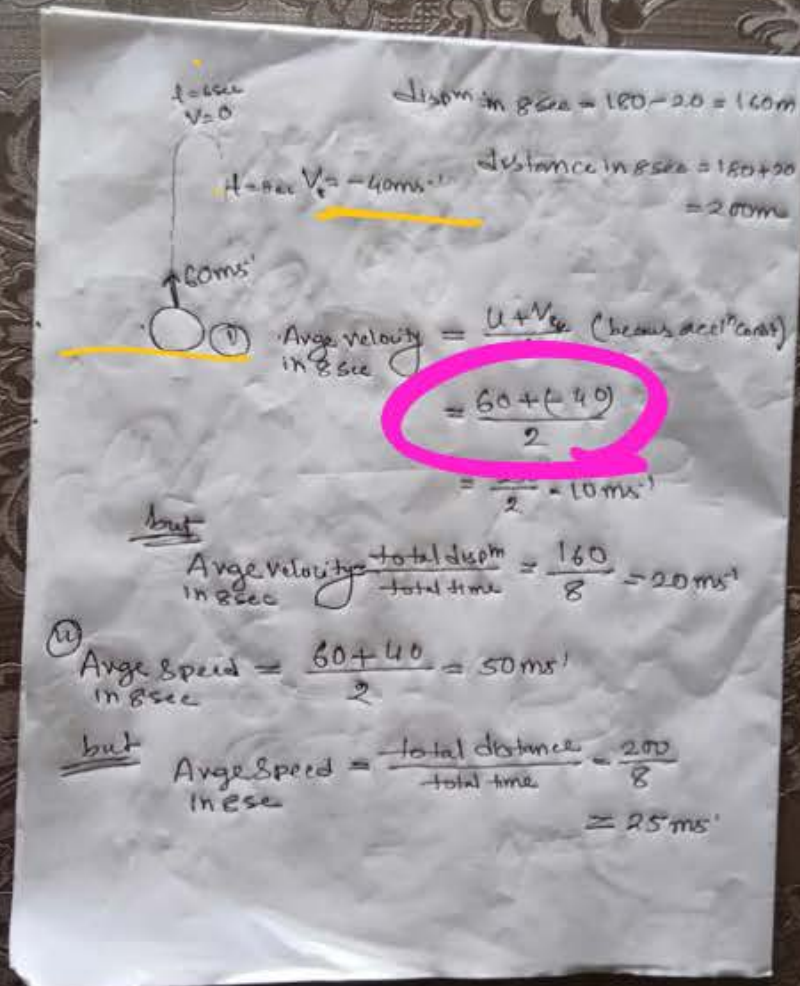 t=6sec
V=0
dispm in 8 sec = 180-20 = 160m
t=8sec V= -40ms⁻¹
distance in 8sec = 180+20
= 200m
60ms⁻¹
① Avge velocity in 8 sec = (becaus accelⁿ const)
= 60+(-40) / 2
= / 2 = 10ms⁻¹
but
Avge velocity in 8sec = total dispm / total time = 160 / 8 = 20ms⁻¹
Avge Speed in 8sec = 60+40 / 2 = 50ms⁻¹
but
Avge Speed = total distance / total time = 200 / 8
= 25ms⁻¹